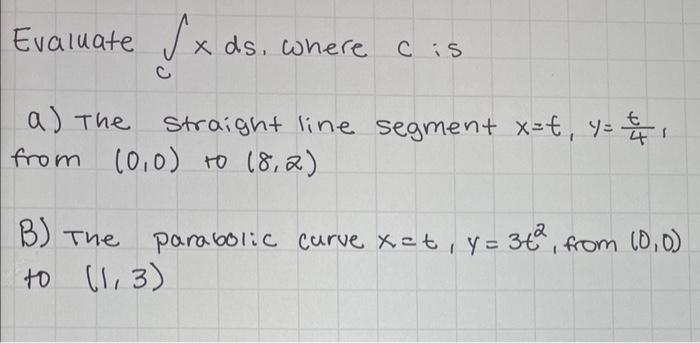 Evaluate ∫_C x ds, where C is
a) The straight line segment x=t, y=t/4,
from (0,0) to (8,2)
B) The parabolic curve x=t, y=3t², from (0,0)
to (1,3)